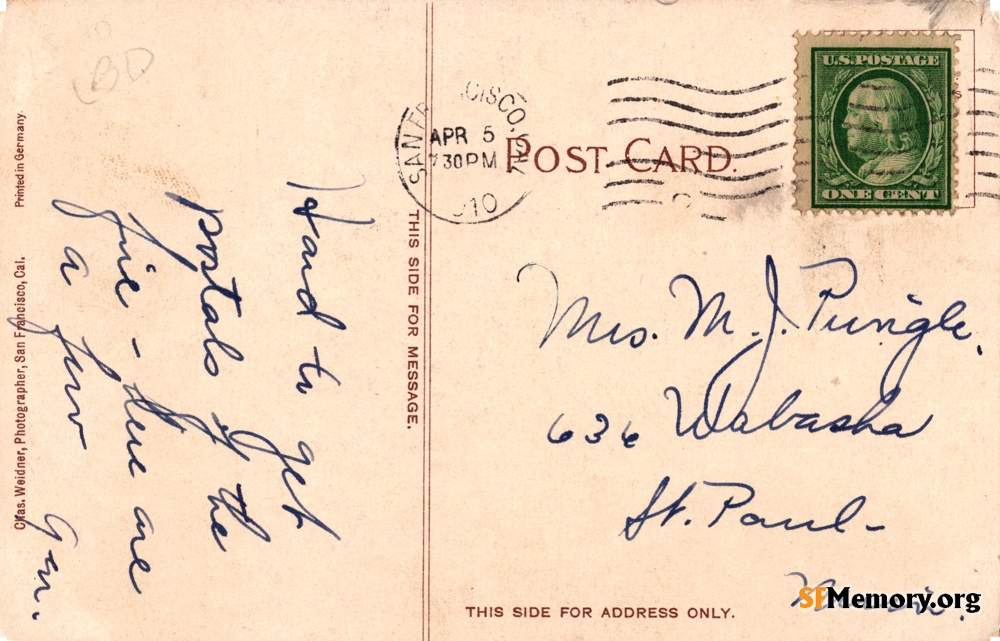 BD
Printed in Germany.
Chas. Weidner, Photographer, San Francisco, Cal.
Hard to get
postals of the
fire - there are
a few
THIS SIDE FOR MESSAGE.
SAN FR CISCO,
APR 5
730PM
10
POST CARD.
U.S. POSTAGE
ONE CENT
Mrs. M. J. Pringle.
636 Wabasha
St. Paul -
Minn.
THIS SIDE FOR ADDRESS ONLY.
SFMemory.org